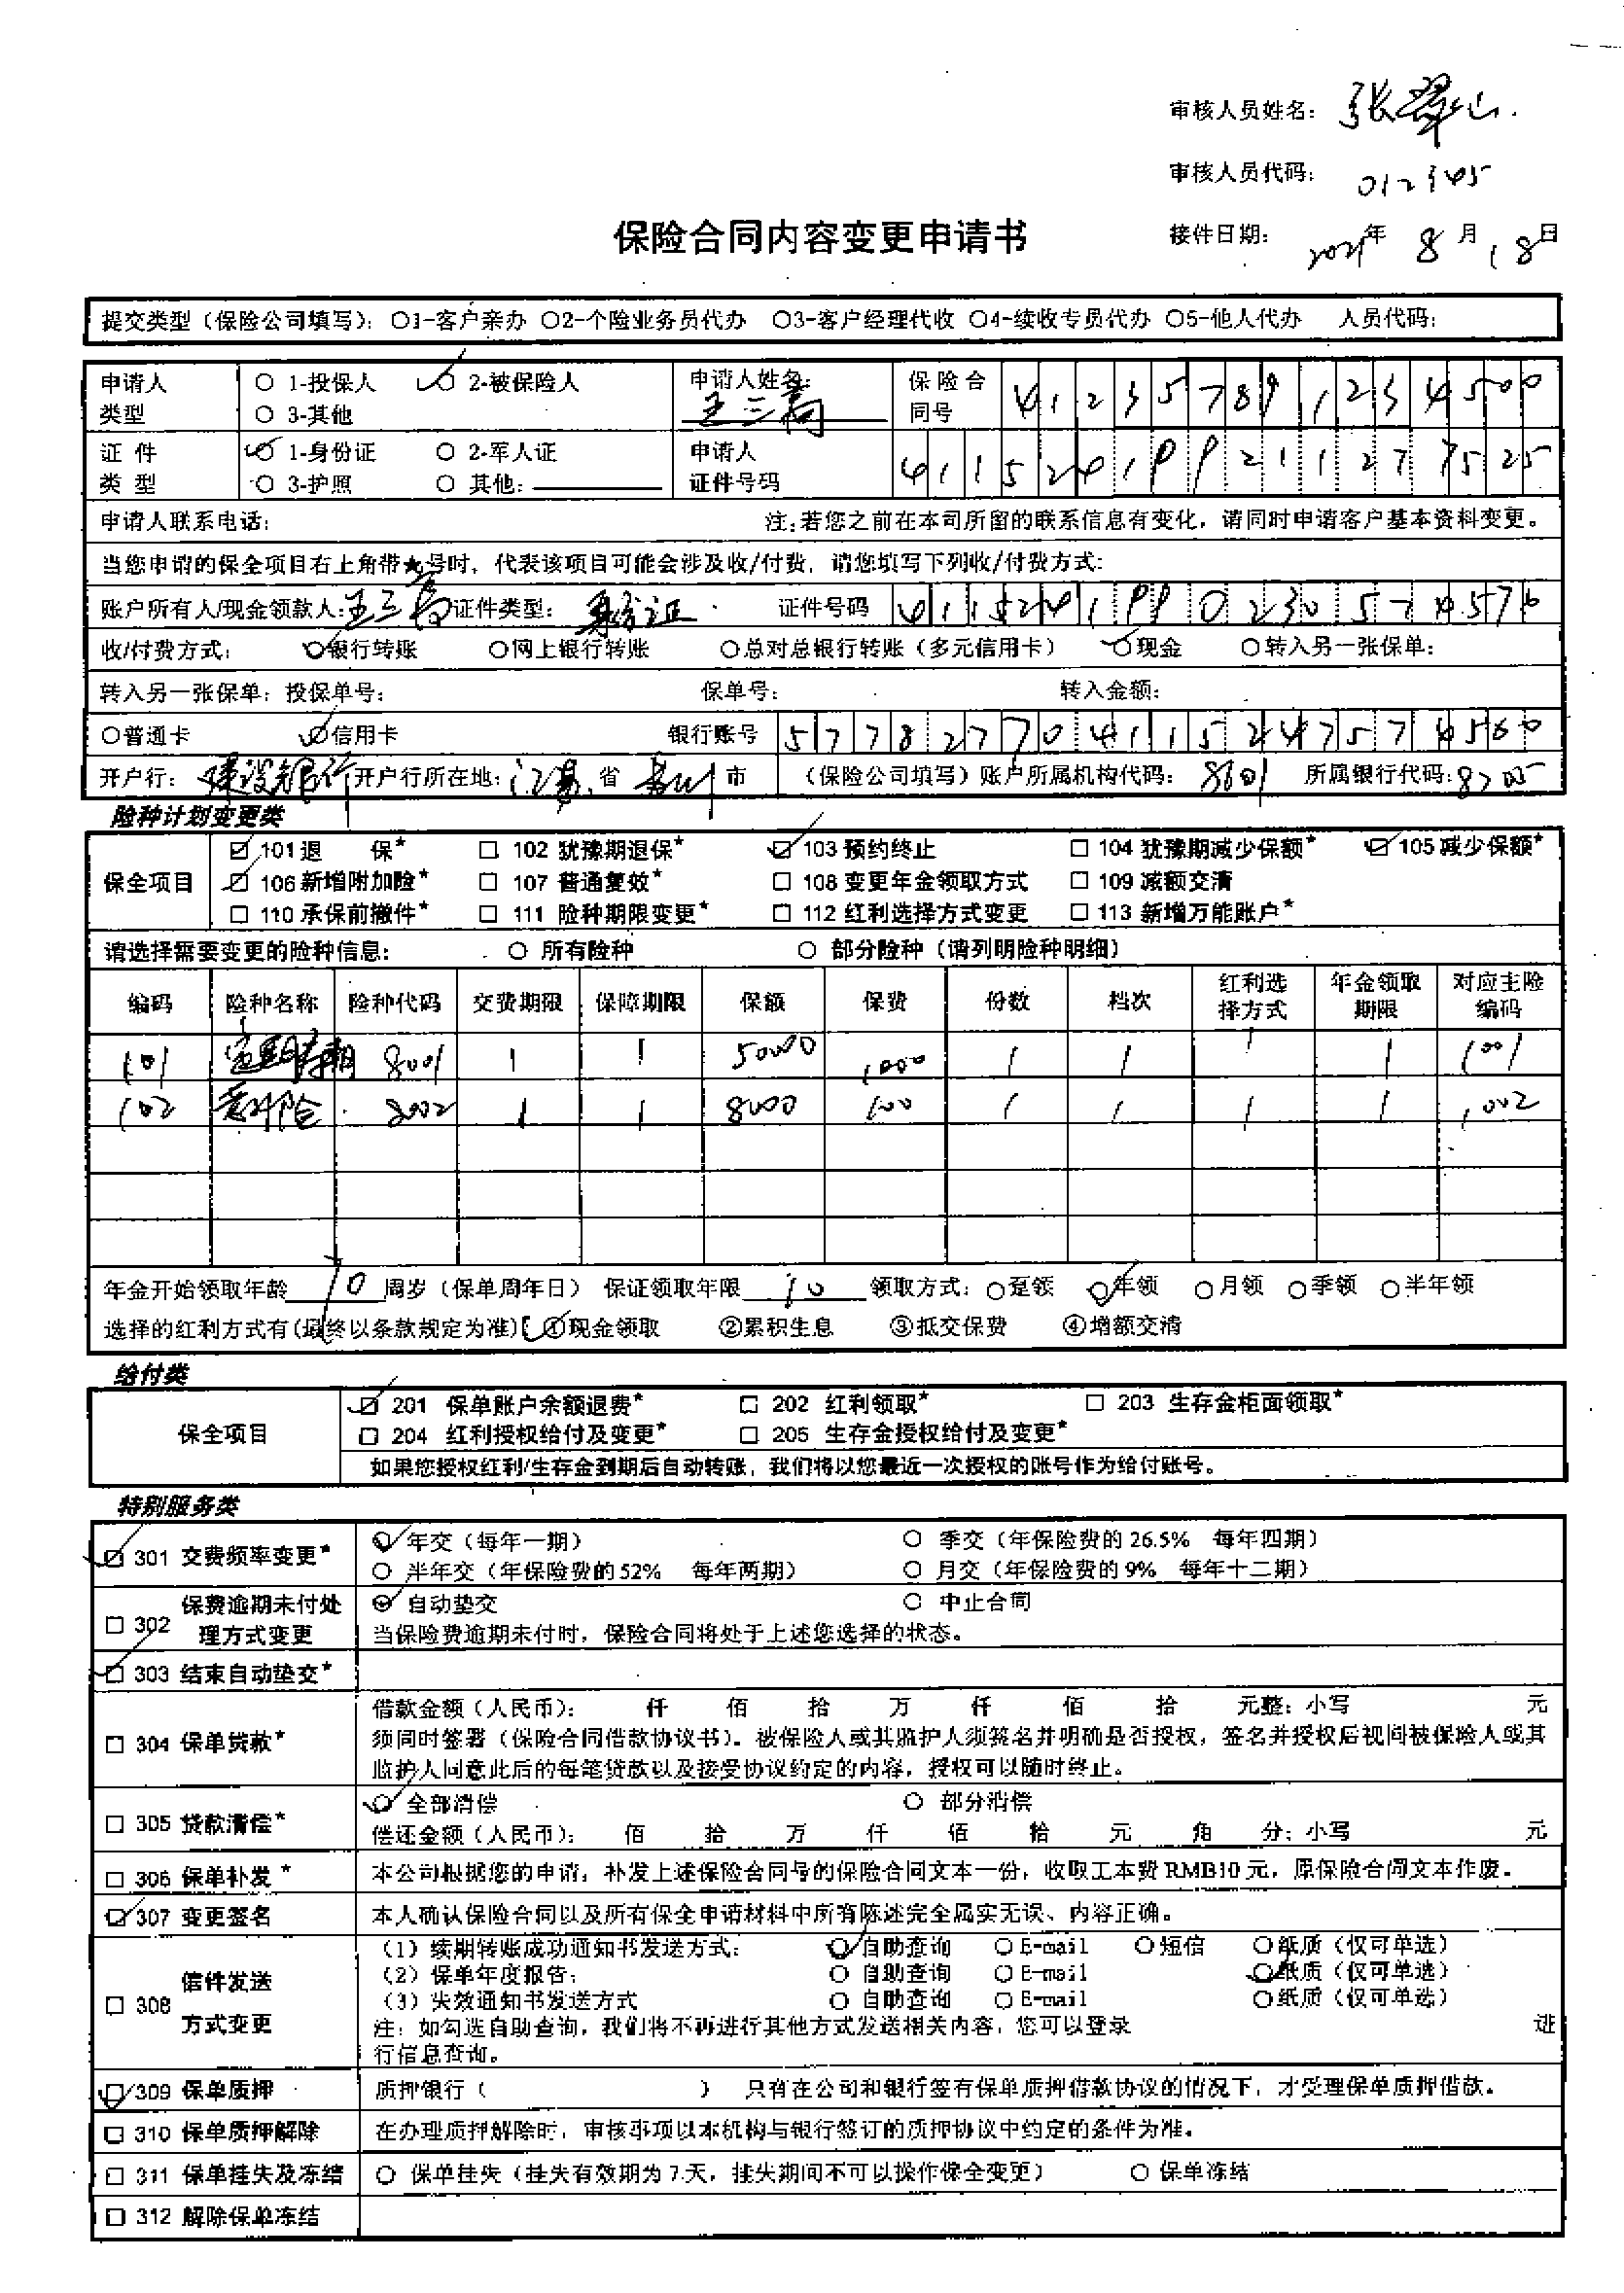 审核人员姓名：张翠山
审核人员代码：012345
保险合同内容变更申请书
接件日期：2021年 8 月 18 日
提交类型（保险公司填写）：○1-客户亲办 ○2-个险业务员代办 ○3-客户经理代收 ○4-续收专员代办 ○5-他人代办 人员代码：
申请人类型 ○ 1-投保人 ○ 2-被保险人 ○ 3-其他 申请人姓名：王三 保险合同号 412357891234500
证件类型 ○ 1-身份证 ○ 2-军人证 ○ 3-护照 ○ 其他： 申请人证件号码
申请人联系电话： 注：若您之前在本司所留的联系信息有变化，请同时申请客户基本资料变更。
当您申请的保全项目右上角带★号时，代表该项目可能会涉及收/付费，请您填写下列收/付费方式：
账户所有人/现金领款人：王三 证件类型：身份证 证件号码
收/付费方式： ○银行转账 ○网上银行转账 ○总对总银行转账（多元信用卡） ○现金 ○转入另一张保单：
转入另一张保单：投保单号： 保单号： 转入金额：
○普通卡 ○信用卡 银行账号 577827704115247574560
开户行：建设银行 开户行所在地： 省 市 （保险公司填写）账户所属机构代码：8601 所属银行代码：8705
险种计划变更类
保全项目 □ 101 退 保* □ 102 犹豫期退保* □ 103 预约终止 □ 104 犹豫期减少保额* □ 105 减少保额*
□ 106 新增附加险* □ 107 普通复效* □ 108 变更年金领取方式 □ 109 减额交清
□ 110 承保前撤件* □ 111 险种期限变更* □ 112 红利选择方式变更 □ 113 新增万能账户*
请选择需要变更的险种信息： ○ 所有险种 ○ 部分险种（请列明险种明细）
编码 险种名称 险种代码 交费期限 保障期限 保额 保费 份数 档次 红利选择方式 年金领取期限 对应主险编码
101 8001 1 1 50000 1000 1 1 1 1 1001
102 意外险 8002 1 1 8000 100 1 1 1 1 1002
年金开始领取年龄 10 周岁（保单周年日） 保证领取年限 10 领取方式：○趸领 ○年领 ○月领 ○季领 ○半年领
选择的红利方式有（最终以条款规定为准）【①现金领取 ②累积生息 ③抵交保费 ④增额交清
给付类
保全项目 □ 201 保单账户余额退费* □ 202 红利领取* □ 203 生存金柜面领取*
□ 204 红利授权给付及变更* □ 205 生存金授权给付及变更*
如果您授权红利/生存金到期后自动转账，我们将以您最近一次授权的账号作为给付账号。
特别服务类
□ 301 交费频率变更* ○ 年交（每年一期） ○ 季交（年保险费的 26.5% 每年四期）
○ 半年交（年保险费的 52% 每年两期） ○ 月交（年保险费的 9% 每年十二期）
□ 302 保费逾期未付处理方式变更 ○ 自动垫交 ○ 中止合同
当保险费逾期未付时，保险合同将处于上述您选择的状态。
□ 303 结束自动垫交*
□ 304 保单贷款* 借款金额（人民币）： 仟 佰 拾 万 仟 佰 拾 元整；小写 元
须同时签署（保险合同借款协议书）。被保险人或其监护人须签名并明确是否授权，签名并授权后视同被保险人或其
监护人同意此后的每笔贷款以及接受协议约定的内容，授权可以随时终止。
□ 305 贷款清偿* ○ 全部清偿 ○ 部分清偿
偿还金额（人民币）： 佰 拾 万 仟 佰 拾 元 角 分；小写 元
□ 306 保单补发 * 本公司根据您的申请，补发上述保险合同号的保险合同文本一份，收取工本费 RMB10 元，原保险合同文本作废。
□ 307 变更签名 本人确认保险合同以及所有保全申请材料中所有陈述完全属实无误、内容正确。
□ 308 信件发送方式变更 （1）续期转账成功通知书发送方式： ○ 自助查询 ○ E-mail ○ 短信 ○ 纸质（仅可单选）
（2）保单年度报告： ○ 自助查询 ○ E-mail ○ 纸质（仅可单选）
（3）失效通知书发送方式 ○ 自助查询 ○ E-mail ○ 纸质（仅可单选）
注：如勾选自助查询，我们将不再进行其他方式发送相关内容，您可以登录 进
行信息查询。
□ 309 保单质押 质押银行（ ） 只有在公司和银行签有保单质押借款协议的情况下，才受理保单质押借款。
□ 310 保单质押解除 在办理质押解除时，审核事项以本机构与银行签订的质押协议中约定的条件为准。
□ 311 保单挂失及冻结 ○ 保单挂失（挂失有效期为 7 天，挂失期间不可以操作保全变更） ○ 保单冻结
□ 312 解除保单冻结